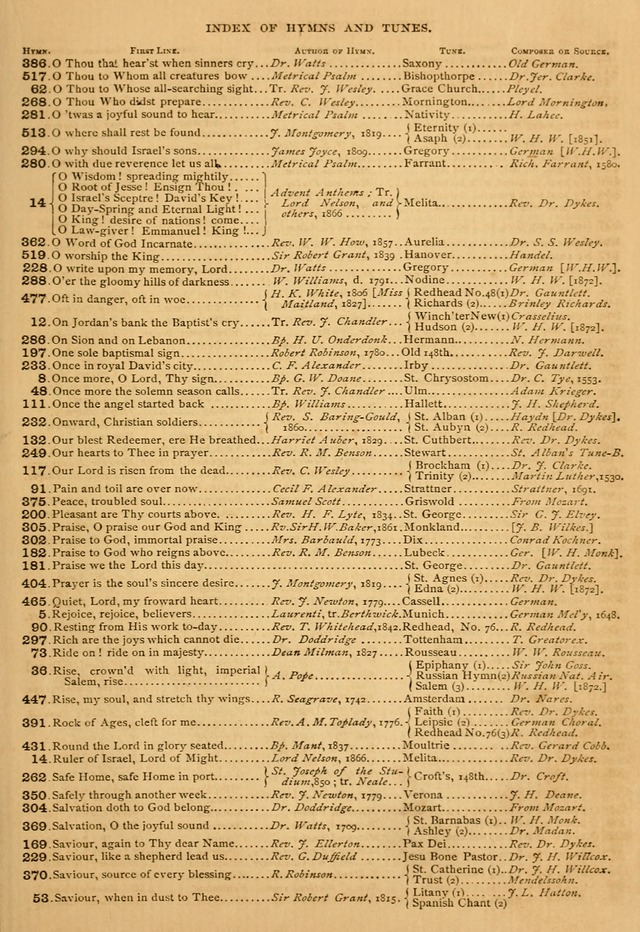 INDEX OF HYMNS AND TUNES.
HYMN. FIRST LINE. AUTHOR OF HYMN. TUNE. COMPOSER OR SOURCE.
386. O Thou that hear'st when sinners cry... Dr. Watts ... Saxony ... Old German.
517. O Thou to Whom all creatures bow ... Metrical Psalm ... Bishopthorpe ... Dr. Jer. Clarke.
62. O Thou to Whose all-searching sight... Tr. Rev. J. Wesley... Grace Church... Pleyel.
268. O Thou Who didst prepare ... Rev. C. Wesley ... Mornington... Lord Mornington.
281. O 'twas a joyful sound to hear... Metrical Psalm ... Nativity ... H. Lahee.
513. O where shall rest be found ... J. Montgomery, 1819... { Eternity (1) ...
Asaph (2) ... W. H. W. [1851].
294. O why should Israel's sons ... James Joyce, 1809... Gregory ... German [W.H.W.].
280. O with due reverence let us all ... Metrical Psalm ... Farrant ... Rich. Farrant, 1580.
14 { O Wisdom! spreading mightily ...
O Root of Jesse! Ensign Thou! ...
O Israel's Sceptre! David's Key! ...
O Day-Spring and Eternal Light! ...
O King! desire of nations! come...
O Law-giver! Emmanuel! King!... } { Advent Anthems; Tr.
Lord Nelson, and
others, 1866 ... } Melita... Rev. Dr. Dykes.
362. O Word of God Incarnate ... Rev. W. W. How, 1857.. Aurelia ... Dr. S. S. Wesley.
519. O worship the King ... Sir Robert Grant, 1839. Hanover... Handel.
228. O write upon my memory, Lord ... Dr. Watts ... Gregory ... German [W.H.W.].
288. O'er the gloomy hills of darkness ... W. Williams, d. 1791... Nodine ... W. H. W. [1872].
477. Oft in danger, oft in woe ... { H. K. White, 1806 [Miss
Maitland, 1827] ... { Redhead No.48(1) Dr. Gauntlett.
Richards (2) ... Brinley Richards.
12. On Jordan's bank the Baptist's cry... Tr. Rev. J. Chandler... { Winch'terNew(1) Crasselius.
Hudson (2) ... W. H. W. [1872].
286. On Sion and on Lebanon ... Bp. H. U. Onderdonk... Hermann... N. Hermann.
197. One sole baptismal sign ... Robert Robinson, 1780... Old 148th... Rev. J. Darwell.
233. Once in royal David's city ... C. F. Alexander ... Irby ... Dr. Gauntlett.
8. Once more, O Lord, Thy sign... Bp. G. W. Doane ... St. Chrysostom ... Dr. C. Tye, 1553.
48. Once more the solemn season calls ... Tr. Rev. J. Chandler... Ulm... Adam Krieger.
111. Once the angel started back ... Bp. Williams ... Hallett ... J. H. Shepherd.
232. Onward, Christian soldiers ... { Rev. S. Baring-Gould,
1860 ... { St. Alban (1) ... Haydn [Dr. Dykes].
St. Aubyn (2) ... R. Redhead.
132. Our blest Redeemer, ere He breathed... Harriet Auber, 1829... St. Cuthbert... Rev. Dr. Dykes.
249. Our hearts to Thee in prayer ... Rev. R. M. Benson ... Stewart ... St. Alban's Tune-B.
117. Our Lord is risen from the dead ... Rev. C. Wesley ... { Brockham (1) ... Dr. J. Clarke.
Trinity (2) ... Martin Luther, 1530.
91. Pain and toil are over now ... Cecil F. Alexander ... Strattner ... Strattner, 1691.
375. Peace, troubled soul ... Samuel Scott ... Griswold ... From Mozart.
200. Pleasant are Thy courts above ... Rev. H. F. Lyte, 1834. St. George ... Sir G. J. Elvey.
305. Praise, O praise our God and King ... Rv.SirH.W.Baker,1861. Monkland... [J. B. Wilkes.]
302. Praise to God, immortal praise ... Mrs. Barbauld, 1773... Dix ... Conrad Kochner.
182. Praise to God who reigns above ... Rev. R. M. Benson ... Lubeck ... Ger. [W. H. Monk].
181. Praise we the Lord this day ... St. George ... Dr. Gauntlett.
404. Prayer is the soul's sincere desire ... J. Montgomery, 1819... { St. Agnes (1) ... Rev. Dr. Dykes.
Edna (2) ... W. H. W. [1872].
465. Quiet, Lord, my froward heart ... Rev. J. Newton, 1779... Cassell ... German.
5. Rejoice, rejoice, believers ... Laurenti, tr. Berthwick. Munich ... German Mel'y, 1648.
90. Resting from His work to-day ... Rev. T. Whitehead, 1842. Redhead, No. 76... R. Redhead.
297. Rich are the joys which cannot die ... Dr. Doddridge ... Tottenham ... T. Greatorex.
73. Ride on! ride on in majesty ... Dean Milman, 1827 ... Rousseau ... W. W. Rousseau.
36. Rise, crown'd with light, imperial
Salem, rise ... } A. Pope ... { Epiphany (1) ... Sir John Goss.
Russian Hymn(2) Russian Nat. Air.
Salem (3) ... W. H. W. [1872.]
447. Rise, my soul, and stretch thy wings ... R. Seagrave, 1742 ... Amsterdam ... Dr. Nares.
391. Rock of Ages, cleft for me ... Rev. A. M. Toplady, 1776. { Faith (1) ... Rev. Dr. Dykes.
Leipsic (2) ... German Choral.
Redhead No.76(3) R. Redhead.
431. Round the Lord in glory seated ... Bp. Mant, 1837 ... Moultrie ... Rev. Gerard Cobb.
14. Ruler of Israel, Lord of Might ... Lord Nelson, 1866 ... Melita ... Rev. Dr. Dykes.
262. Safe Home, safe Home in port ... { St. Joseph of the Stu-
dium, 850; tr. Neale... } Croft's, 148th... Dr. Croft.
350. Safely through another week ... Rev. J. Newton, 1779... Verona ... J. H. Deane.
304. Salvation doth to God belong ... Dr. Doddridge ... Mozart ... From Mozart.
369. Salvation, O the joyful sound ... Dr. Watts, 1709 ... { St. Barnabas (1).. W. H. Monk.
Ashley (2) ... Dr. Madan.
169. Saviour, again to Thy dear Name ... Rev. J. Ellerton ... Pax Dei ... Rev. Dr. Dykes.
229. Saviour, like a shepherd lead us ... Rev. G. Duffield ... Jesu Bone Pastor.. Dr. J. H. Willcox.
370. Saviour, source of every blessing ... R. Robinson ... { St. Catherine (1).. Dr. J. H. Willcox.
Trust (2) ... Mendelssohn.
53. Saviour, when in dust to Thee ... Sir Robert Grant, 1815. { Litany (1) ... J. L. Hatton.
Spanish Chant (2)